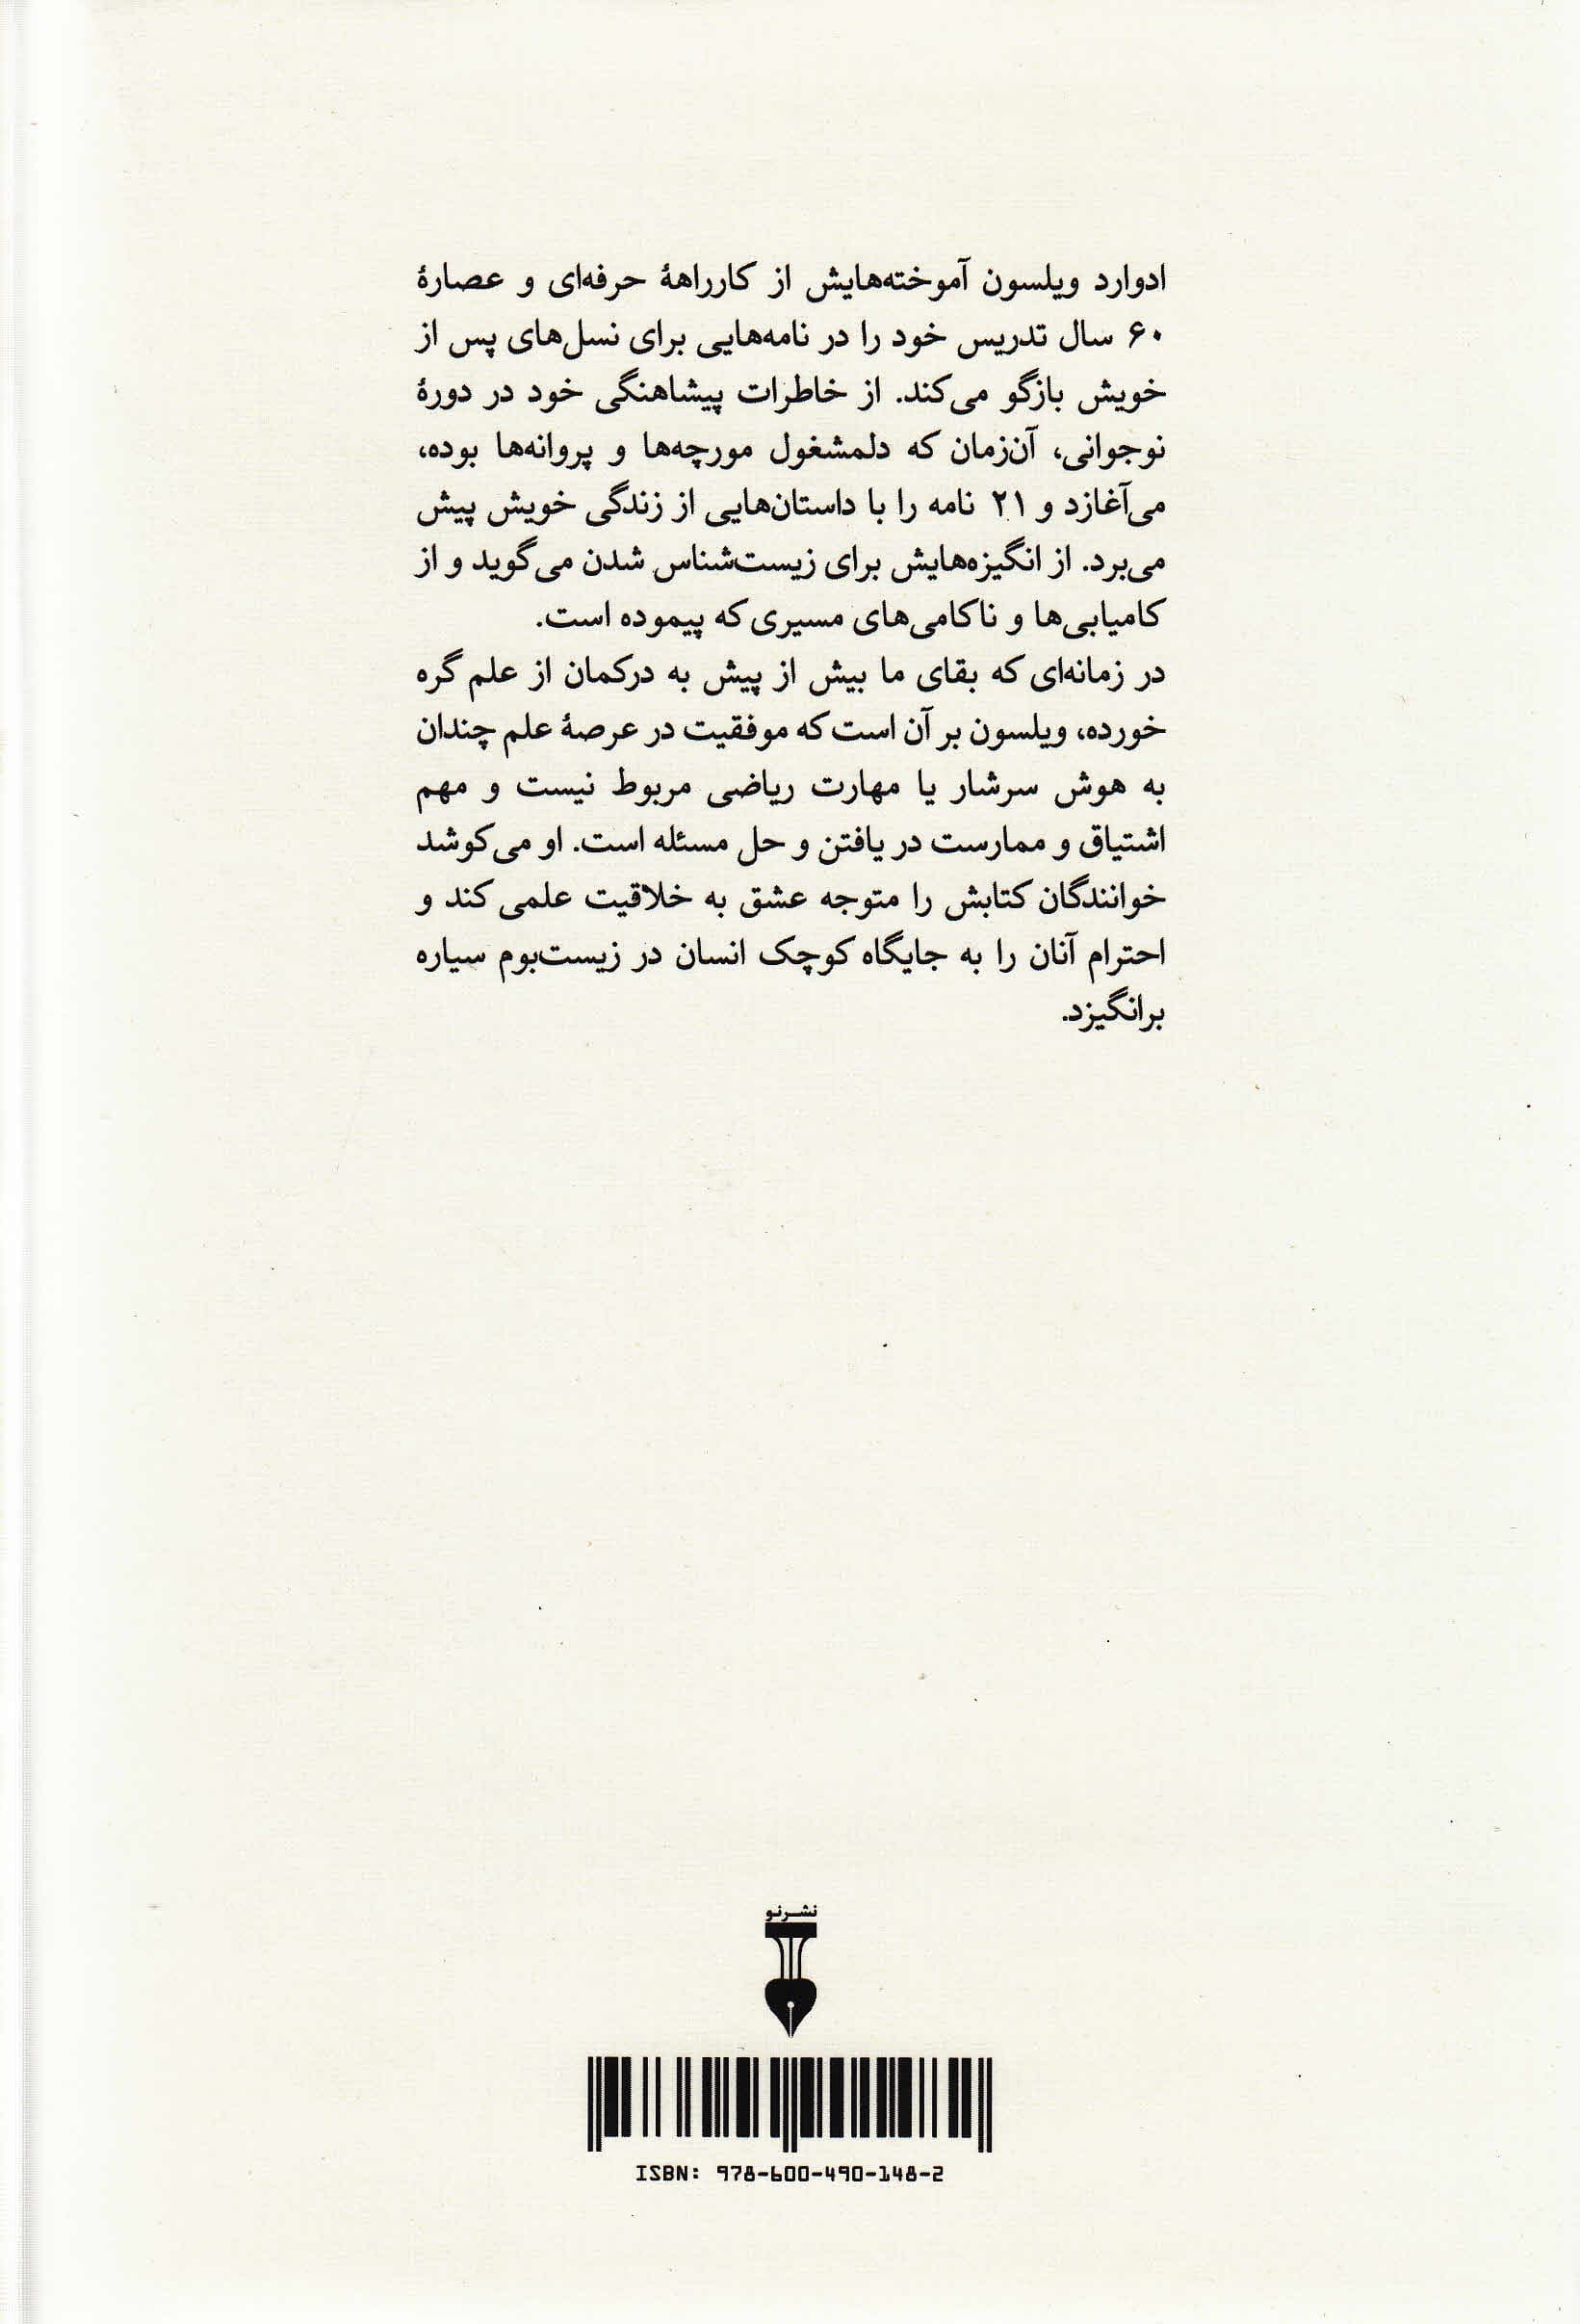 ادوارد ویلسون آموخته‌هایش از کارراههٔ حرفه‌ای و عصارهٔ
۶۰ سال تدریس خود را در نامه‌هایی برای نسل‌های پس از
خویش بازگو می‌کند. از خاطرات پیشاهنگی خود در دورهٔ
نوجوانی، آن‌زمان که دلمشغول مورچه‌ها و پروانه‌ها بوده،
می‌آغازد و ۲۱ نامه را با داستان‌هایی از زندگی خویش پیش
می‌برد. از انگیزه‌هایش برای زیست‌شناس شدن می‌گوید و از
کامیابی‌ها و ناکامی‌های مسیری که پیموده است.
در زمانه‌ای که بقای ما بیش از پیش به درکمان از علم گره
خورده، ویلسون بر آن است که موفقیت در عرصهٔ علم چندان
به هوش سرشار یا مهارت ریاضی مربوط نیست و مهم
اشتیاق و ممارست در یافتن و حل مسئله است. او می‌کوشد
خوانندگان کتابش را متوجه عشق به خلاقیت علمی کند و
احترام آنان را به جایگاه کوچک انسان در زیست‌بوم سیاره
برانگیزد.
نشرنو
ISBN: 978-600-490-148-2